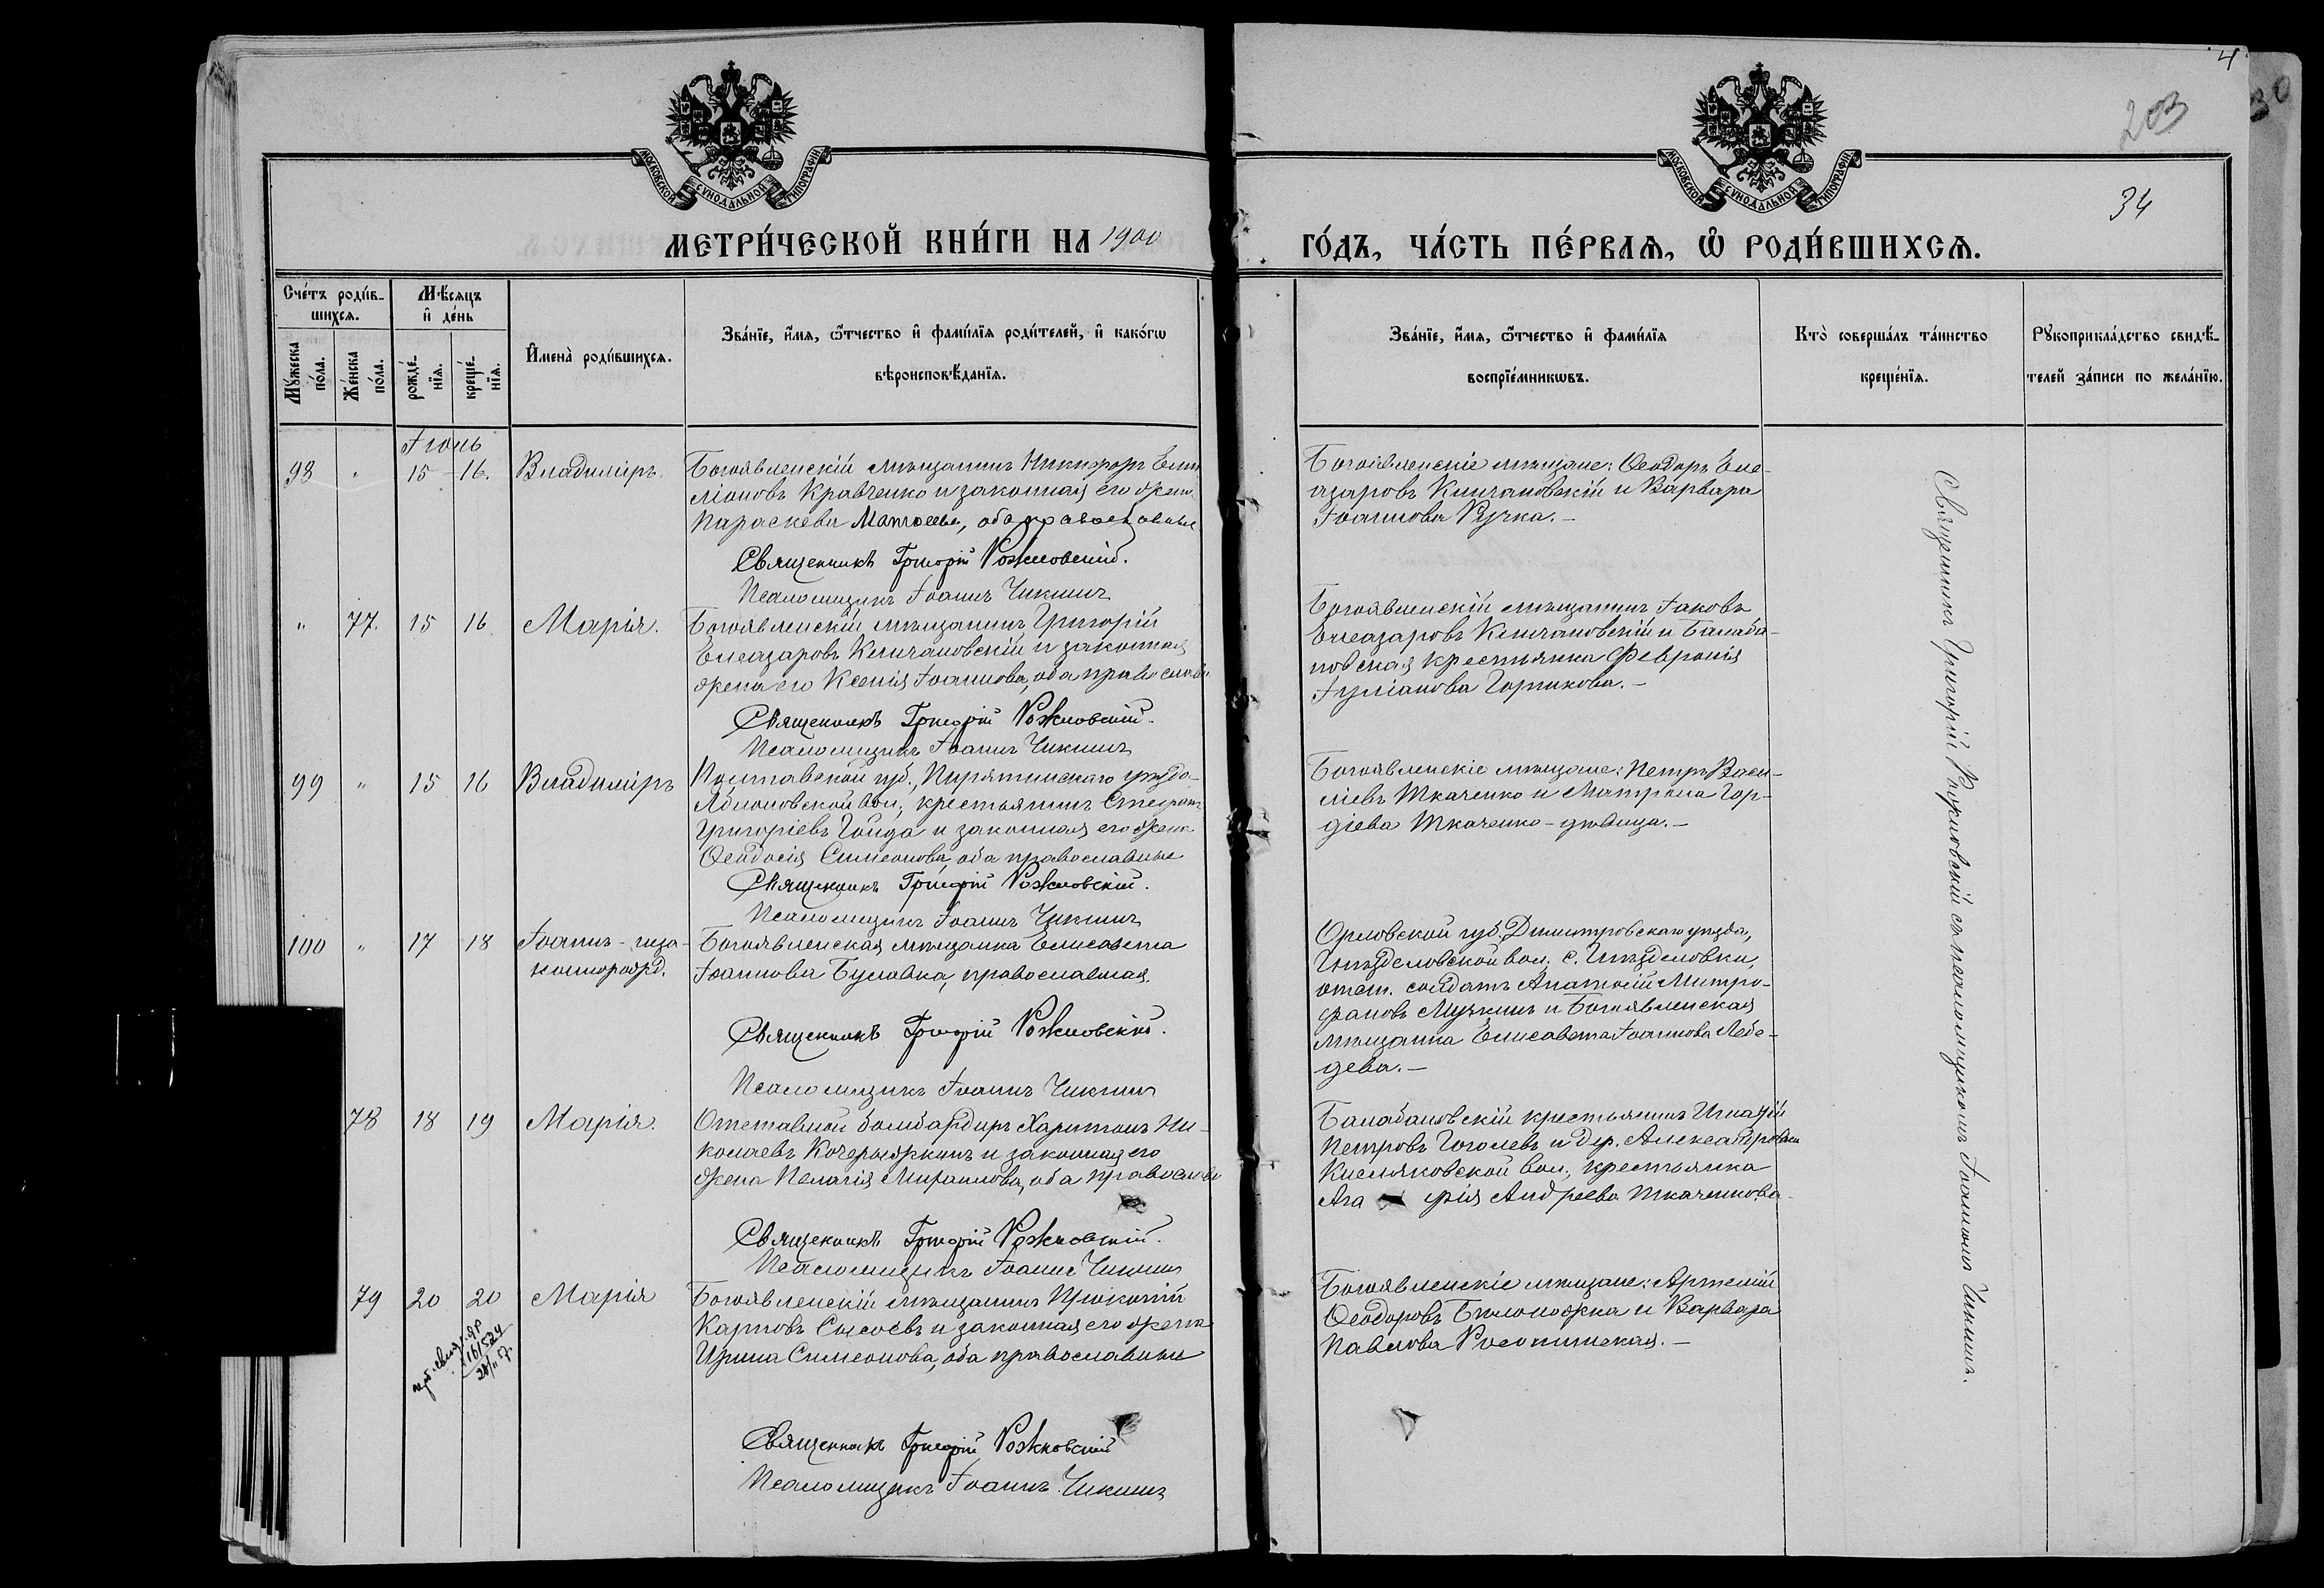 4
203
30
34
МОСКОВСКОЙ СѴНОДАЛЬНОЙ ТИПОГРАФІИ
МОСКОВСКОЙ СѴНОДАЛЬНОЙ ТИПОГРАФІИ
МЕТРИ́ЧЕСКОЙ КНИ́ГИ НА 1900
ГО́ДЪ, ЧА́СТЬ ПЕ́РВАѦ, Ѿ РОДИ́ВШИХСѦ.
Сче́тъ роди́в-
шихсѧ.
Мꙋ́жеска по́ла.
Же́нска по́ла.
Мѣ́сѧцъ
и҆ де́нь
рожде́-нїѧ.
креще́-нїѧ.
И҆мена̀ роди́вшихсѧ.
Зва́нїе, и҆́мѧ, ѻ҆́тчество и҆ фами́лїѧ роди́телей, и҆ како́гѡ
вѣроисповѣ́данїѧ.
Зва́нїе, и҆́мѧ, ѻ҆́тчество и҆ фами́лїѧ
воспрїе́мникѡвъ.
Кто̀ соверша́лъ та́инство
креще́нїѧ.
Рꙋкоприкла́дство свидѣ́-
телей за́писи по жела́нїю.
Іюнь
98 " 15 16. Владиміръ.
Богоявленскій мѣщанинъ Никифоръ Еми
ліановъ Кравченко и законная его жена
Параскева Матѳеева, оба православные
Священникъ Григорій Рожновскій.
Псаломщикъ Іоаннъ Чикинъ
Богоявленскіе мѣщане: Ѳеодоръ Еле-
азаровъ Климановскій и Варвара
Іоаннова Ручка. –
" 77. 15 16 Марія.
Богоявленскій мѣщанинъ Григорій
Елеазаровъ Климановскій и законная
жена его Ксенія Іоаннова, оба православн
Священникъ Григорій Рожновскій.
Псаломщикъ Іоаннъ Чикинъ
Богоявленскій мѣщанинъ Іаковъ
Елеазаровъ Климановскій и Балаба-
новская крестьянка Февронія
Іуліанова Горшкова. –
99 " 15 16 Владиміръ
Полтавской губ., Пирятинскаго уѣзда
Яблоновской вол., крестьянинъ Стефанъ
Григоріевъ Гойда и законная его жена
Ѳеодосія Симеонова, оба православные
Священникъ Григорій Рожновскій.
Псаломщикъ Іоаннъ Чикинъ
Богоявленскіе мѣщане: Петръ Васи-
ліевъ Ткаченко и Матрона Гор-
діева Ткаченко – дѣвица. –
100 " 17 18 Іоаннъ – неза-
коннорожд.
Богоявленская мѣщанка Елисавета
Іоаннова Булавка, православная.
Священникъ Григорій Рожновскій.
Псаломщикъ Іоаннъ Чикинъ
Орловской губ. Димитровскаго уѣзда,
Гнѣздиловской вол. с. Гнѣздиловки,
отст. солдатъ Анатолій Митро-
фановъ Мускинъ и Богоявленская
мѣщанка Елисавета Іоаннова Лебе-
дева. –
78 18 19 Марія.
Отставной бомбардиръ Харитонъ Ни-
колаевъ Кочерыжкинъ и законная его
жена Пелагія Михаилова, оба православн
Священникъ Григорій Рожновскій.
Псаломщикъ Іоаннъ Чикинъ
Балабановскій крестьянинъ Игнатій
Петровъ Гоголевъ и дер. Александровки
Кисляковской вол., крестьянка
Ага фія Андреева Ткаченкова
79 20 20 Марія
Богоявленскій мѣщанинъ Прокопій
Карповъ Сысоевъ и законная его жена
Ирина Симеонова, оба православные
Священникъ Григорій Рожновскій
Псаломщикъ Іоаннъ Чикинъ
Богоявленскіе мѣщане: Артемій
Ѳеодоровъ Бѣлоножка и Варвара
Павлова Росопинская. –
Священникъ Григорій Рожновскій съ псаломщикомъ Іоанномъ Чикинымъ.